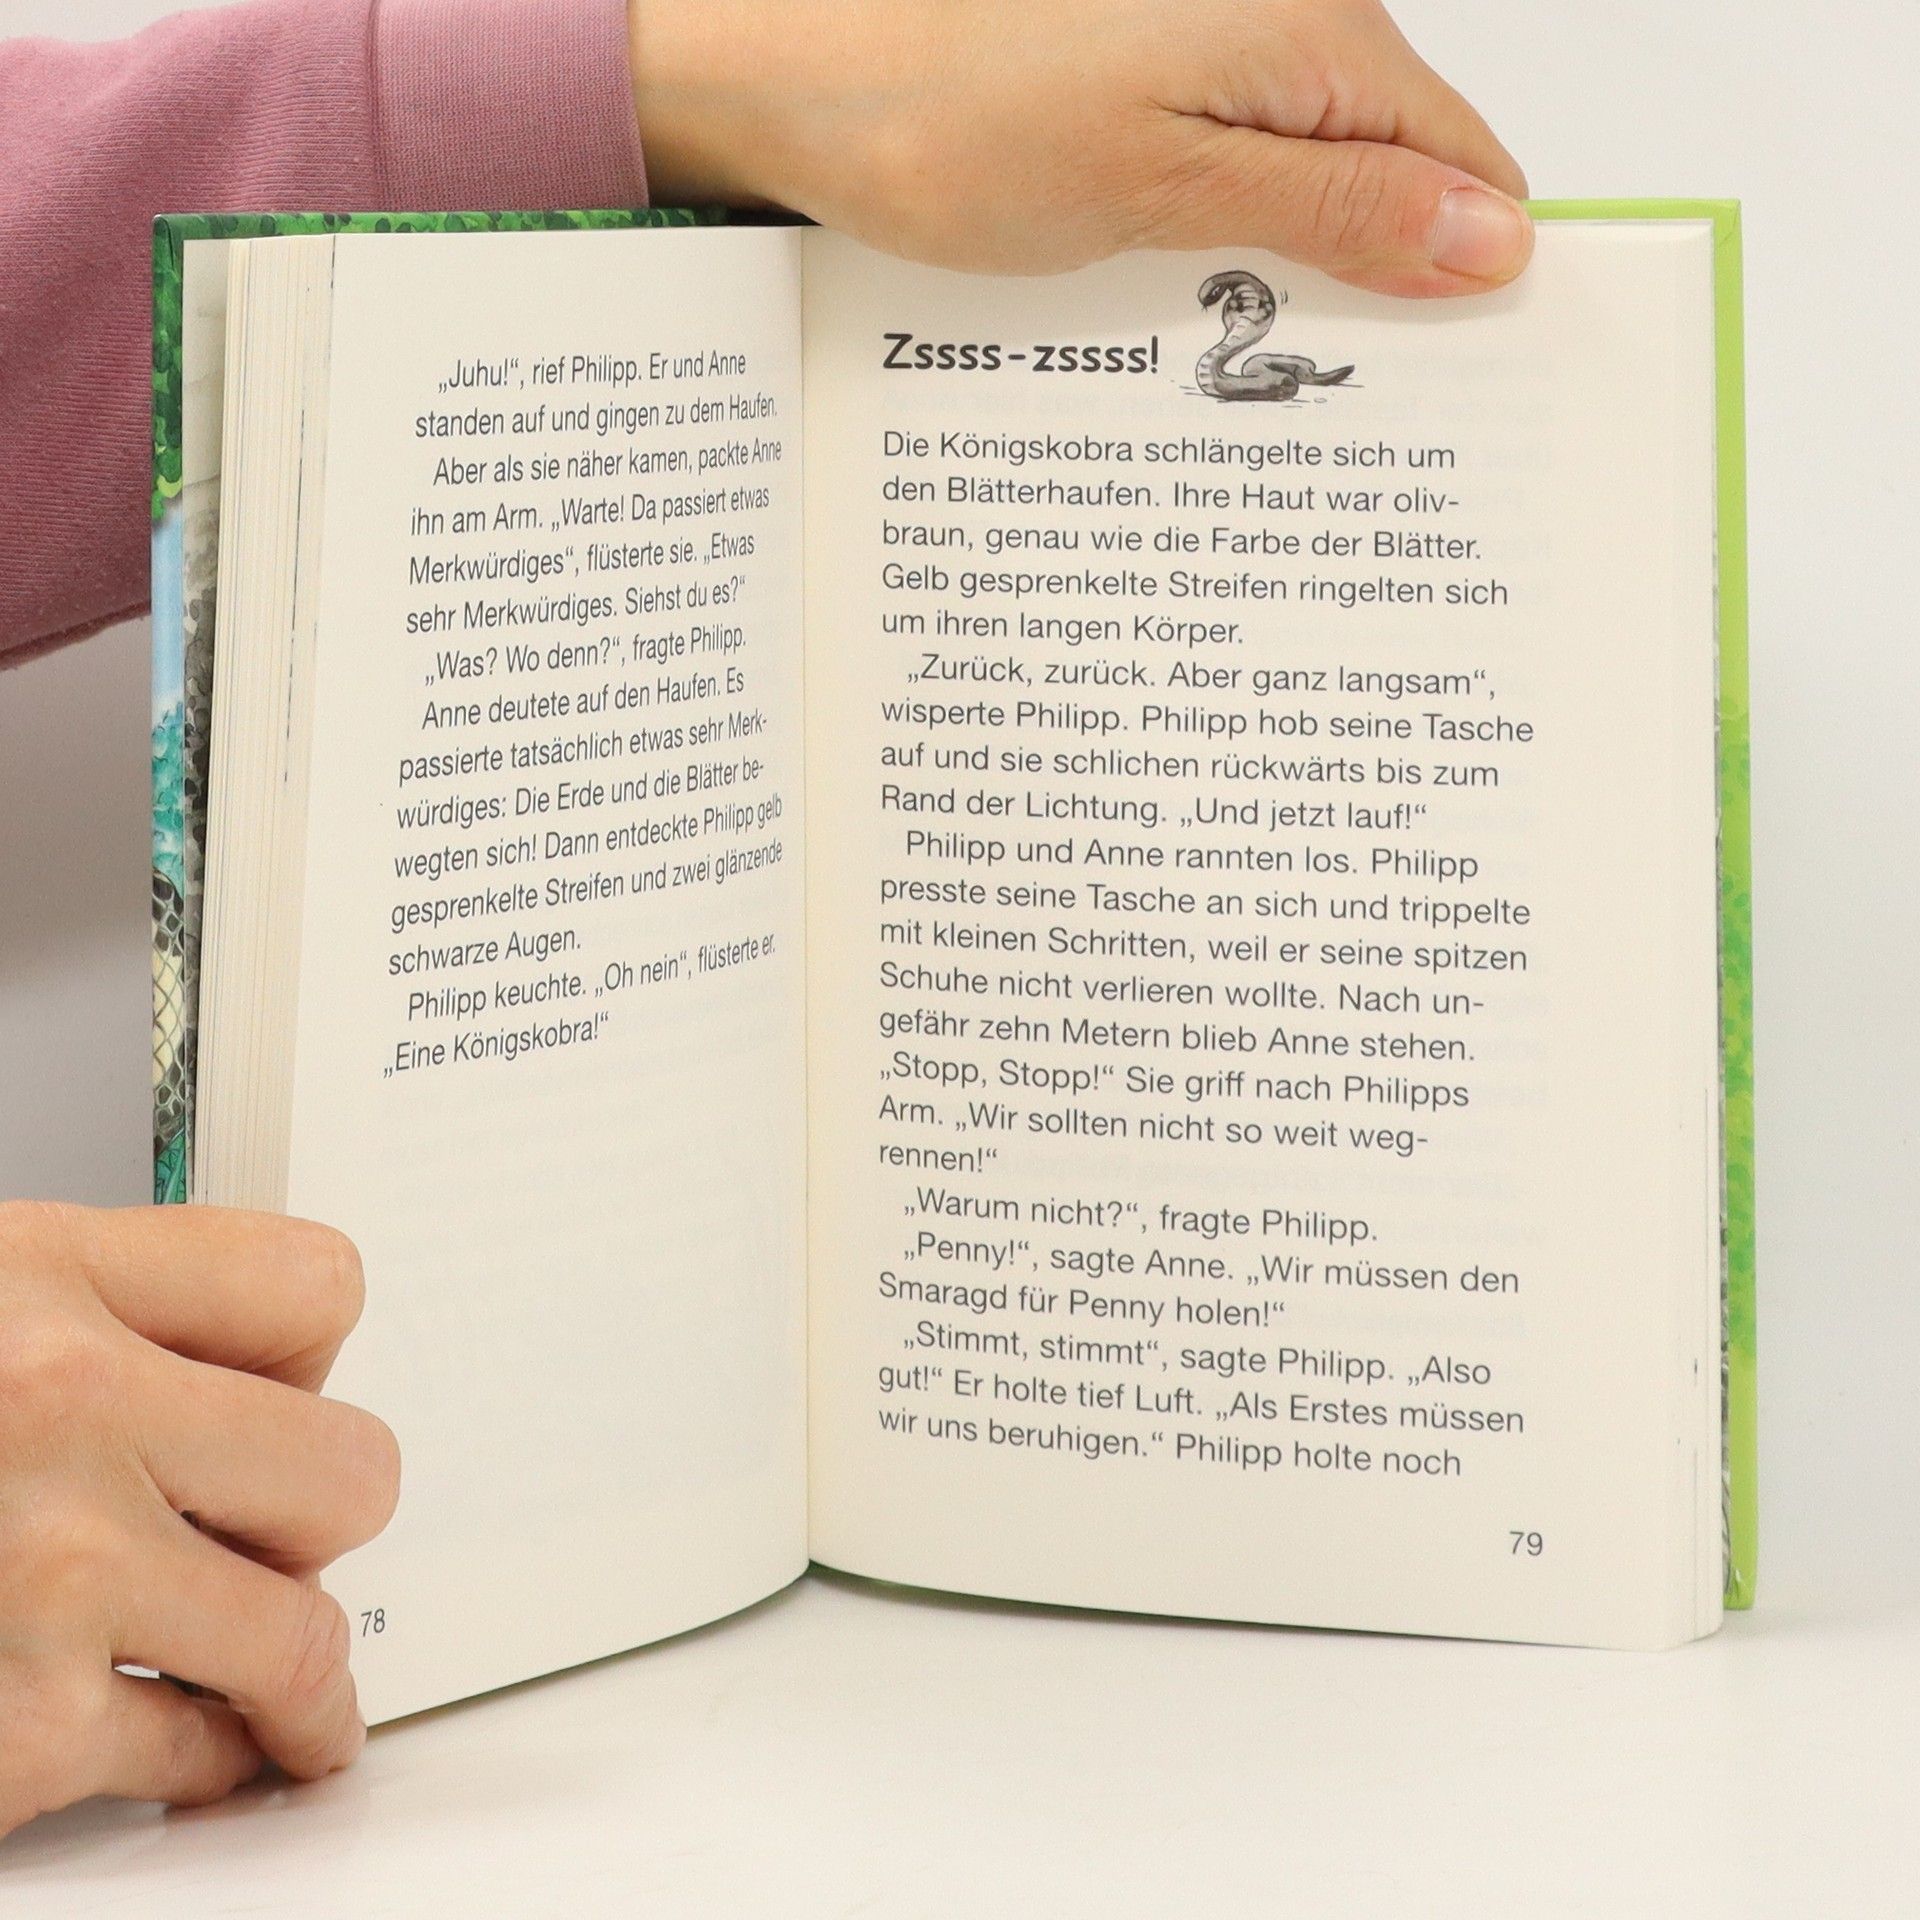 „Juhu!“, rief Philipp. Er und Anne
standen auf und gingen zu dem Haufen.
Aber als sie näher kamen, packte Anne
ihn am Arm. „Warte! Da passiert etwas
Merkwürdiges“, flüsterte sie. „Etwas
sehr Merkwürdiges. Siehst du es?“
„Was? Wo denn?“, fragte Philipp.
Anne deutete auf den Haufen. Es
passierte tatsächlich etwas sehr Merk-
würdiges: Die Erde und die Blätter be-
wegten sich! Dann entdeckte Philipp gelb
gesprenkelte Streifen und zwei glänzende
schwarze Augen.
Philipp keuchte. „Oh nein“, flüsterte er.
„Eine Königskobra!“
78
Zssss-zssss!
Die Königskobra schlängelte sich um
den Blätterhaufen. Ihre Haut war oliv-
braun, genau wie die Farbe der Blätter.
Gelb gesprenkelte Streifen ringelten sich
um ihren langen Körper.
„Zurück, zurück. Aber ganz langsam“,
wisperte Philipp. Philipp hob seine Tasche
auf und sie schlichen rückwärts bis zum
Rand der Lichtung. „Und jetzt lauf!“
Philipp und Anne rannten los. Philipp
presste seine Tasche an sich und trippelte
mit kleinen Schritten, weil er seine spitzen
Schuhe nicht verlieren wollte. Nach un-
gefähr zehn Metern blieb Anne stehen.
„Stopp, Stopp!“ Sie griff nach Philipps
Arm. „Wir sollten nicht so weit weg-
rennen!“
„Warum nicht?“, fragte Philipp.
„Penny!“, sagte Anne. „Wir müssen den
Smaragd für Penny holen!“
„Stimmt, stimmt“, sagte Philipp. „Also
gut!“ Er holte tief Luft. „Als Erstes müssen
wir uns beruhigen.“ Philipp holte noch
79